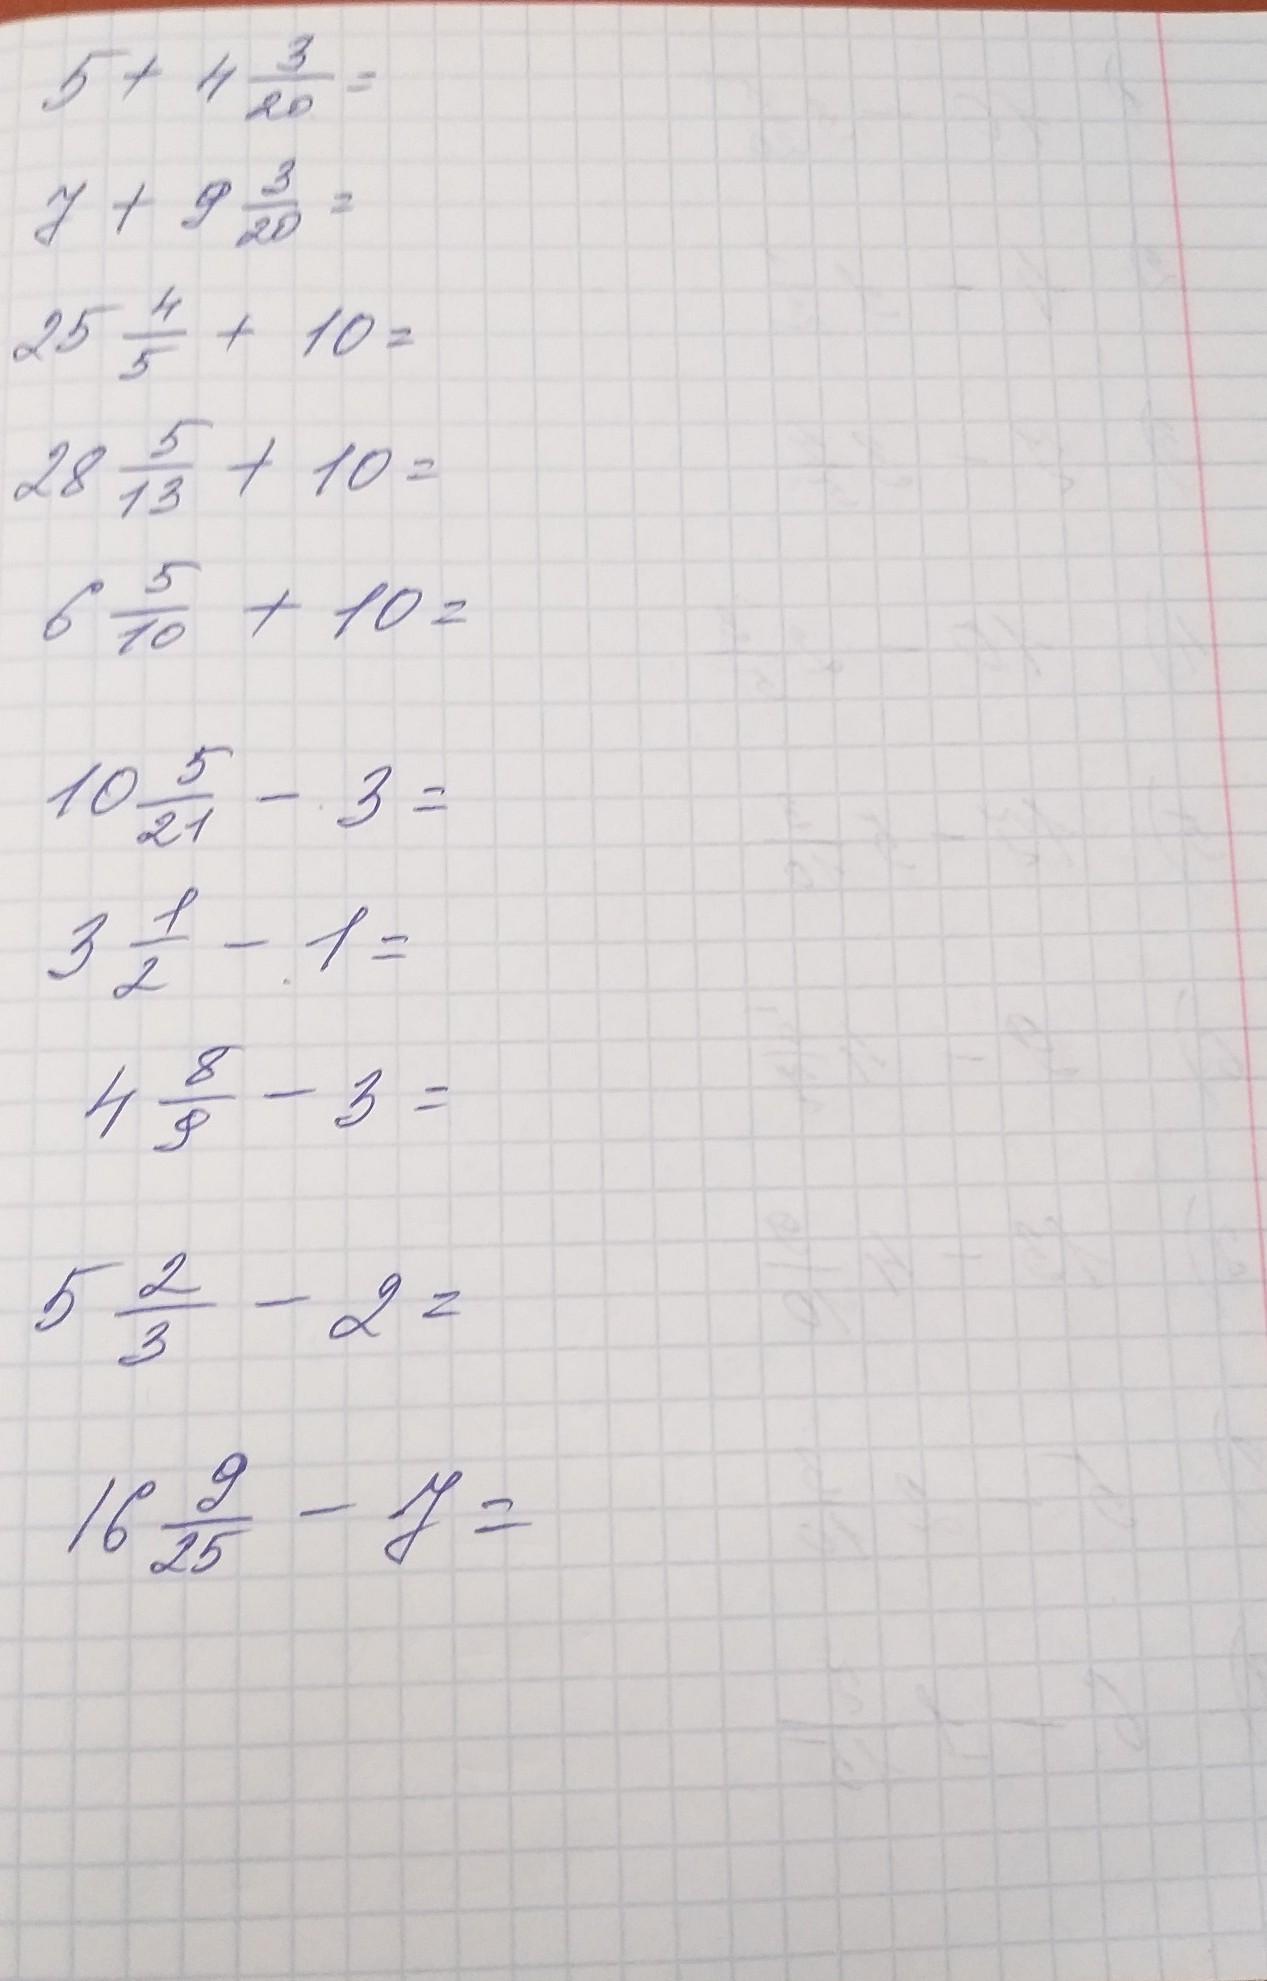 5 + 4 3/20 =
7 + 9 3/20 =
25 4/5 + 10 =
28 5/13 + 10 =
6 5/10 + 10 =
10 5/21 - 3 =
3 1/2 - 1 =
4 8/9 - 3 =
5 2/3 - 2 =
16 9/25 - 7 =